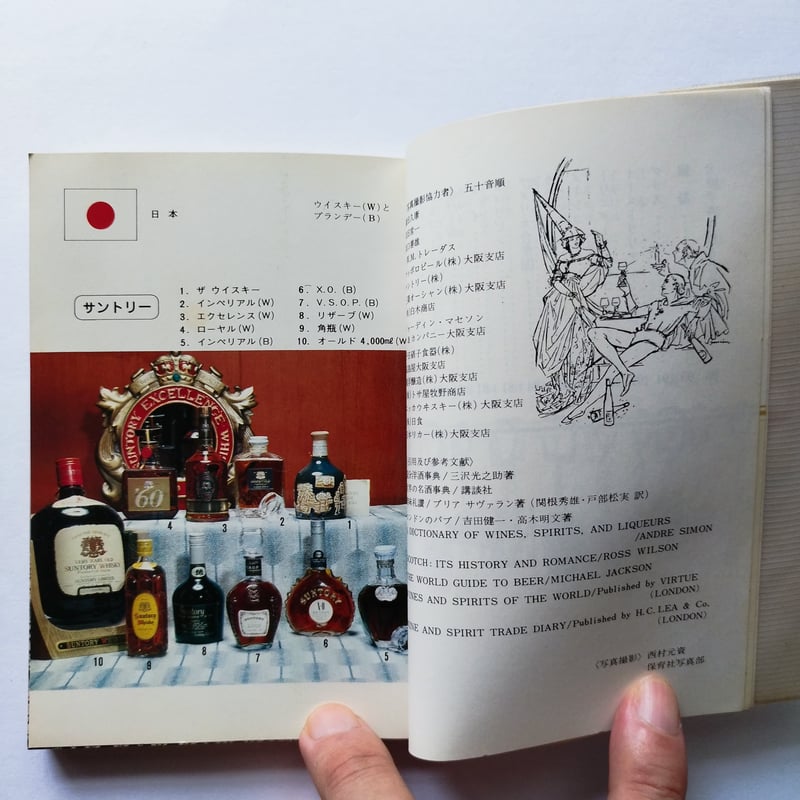 日本
ウイスキー(W)と
ブランデー(B)
サントリー
1. ザ ウイスキー
2. インペリアル(W)
3. エクセレンス(W)
4. ローヤル(W)
5. インペリアル(B)
6. X.O. (B)
7. V.S.O.P. (B)
8. リザーブ(W)
9. 角瓶(W)
10. オールド 4,000mℓ(W
SUNTORY EXCELLENCE WHIS
'60
4 3 2 1
SUNTORY WHISKY
Suntory
Whisky
SUNTORY
XO
SUNTORY WHIS
10 9 8 7 6 5
写真撮影協力者〉 五十音順
M.トレーダス
ッポロビール(株)大阪支店
ントリー(株)
オーシャン(株)大阪支店
白木商店
ャーディン・マセソン
カンパニー大阪支店
硝子食器(株)
大阪支店
醸造(株)大阪支店
トサ屋牧野商店
ッカウヰスキー(株)大阪支店
日食
リカー(株)大阪支店
用及び参考文献〉
洋酒事典/三沢光之助著
の名酒事典/講談社
礼讃/ブリア サヴァラン著(関根秀雄・戸部松実 訳)
ンドンのパブ/吉田健一・高木明文著
DICTIONARY OF WINES, SPIRITS, AND LIQUEURS
/ANDRE SIMON
COTCH: ITS HISTORY AND ROMANCE/ROSS WILSON
E WORLD GUIDE TO BEER/MICHAEL JACKSON
NES AND SPIRITS OF THE WORLD/Published by VIRTUE
(LONDON)
NE AND SPIRIT TRADE DIARY/Published by H.C. LEA & Co.
(LONDON)
〈写真撮影〉 西村元資
保育社写真部